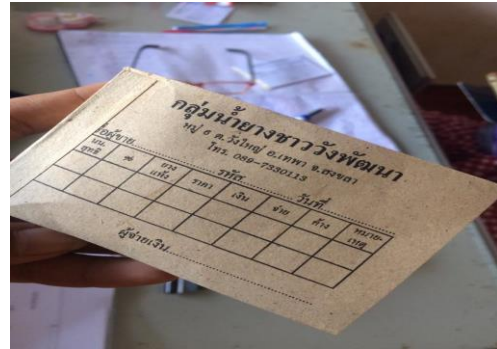 กลุ่มน้ำยางชาววังพัฒนา
หมู่ 6 ต.วังใหญ่ อ.เทพา จ.สงขลา
โทร. 089-7330113
ชื่อผู้ขาย.................... รหัส.................... วันที่....................
นน. สุทธิ % ยาง แห้ง ราคา เงิน จ่าย ค้าง หมาย- เหตุ
ผู้จ่ายเงิน........................................